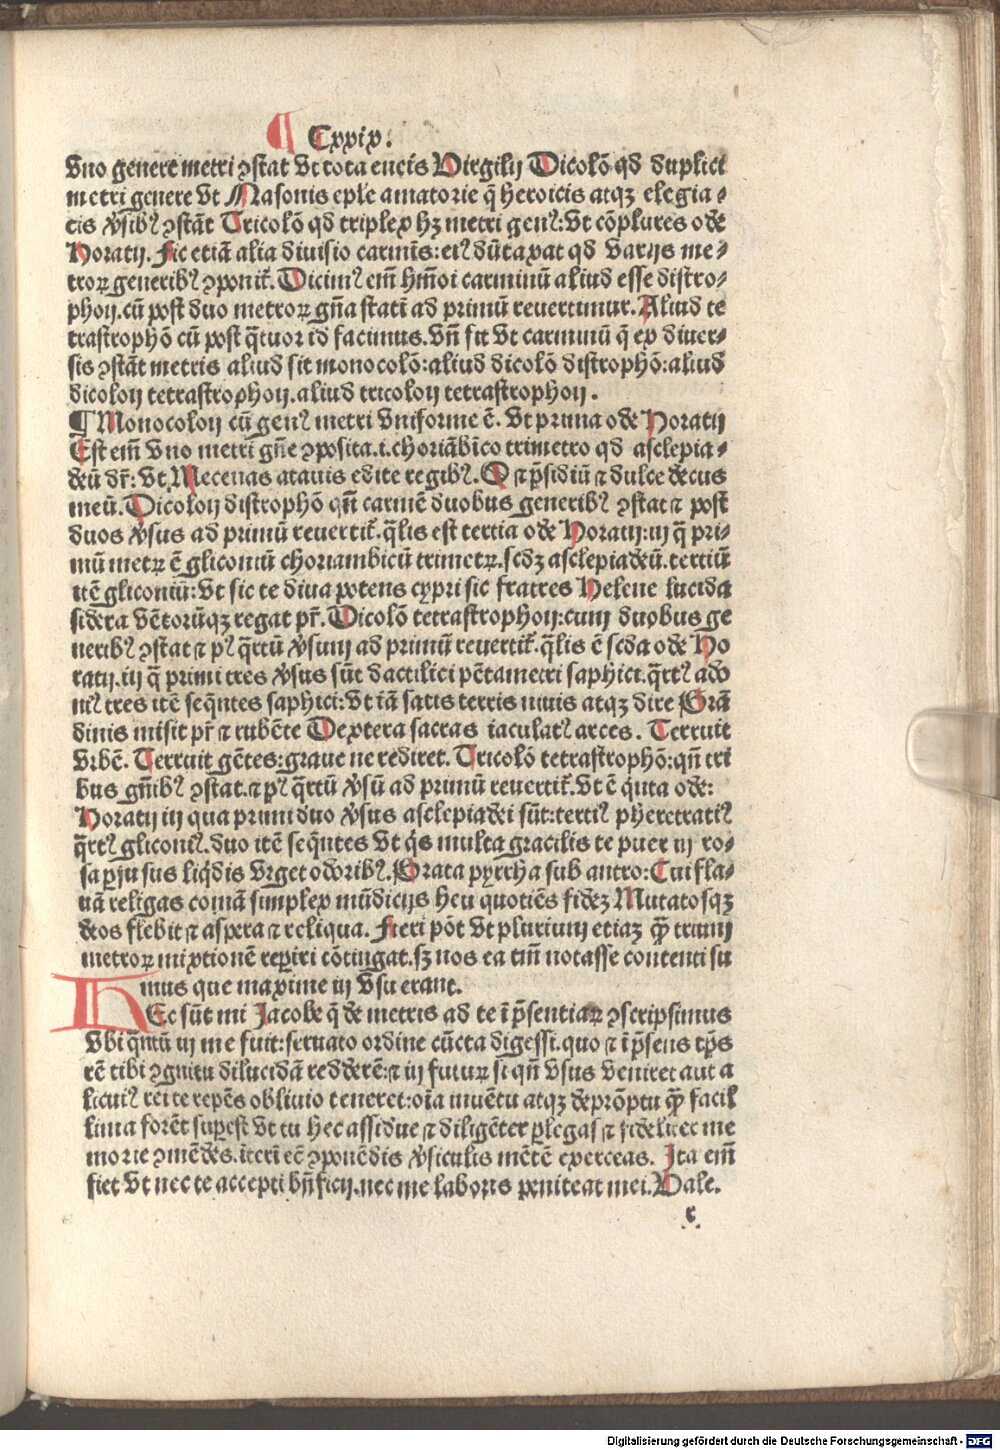 ¶ Cxxix.
vno genere metri ꝯstat vt tota eneis Virgilij Dicolō qd duplici
metri genere vt Nasonis eple amatorie q̄ heroicis atqꝫ elegia⸗
cis v̓sibꝰ ꝯstāt Tricolō qd triplex hꝫ metri genꝰ. vt cōplures ode
Horatij. Fic etiā alia diuisio carminis: eiꝰ dūtaxat qd varijs me⸗
troꝝ generibꝰ ꝯponit᷑. Dicimꝰ em̄ hm̄oi carminū aliud esse distro⸗
phon. cū post duo metroꝝ gn̄a stati ad primū reuertimur. Aliud te
trastrophō cū post q̄tuor id facimus. vn̄ fit vt carminū q̄ ex diuer⸗
sis ꝯstāt metris aliud sit monocolō: aliud dicolō distrophō: aliud
dicolon tetrastrophon. aliud tricolon tetrastrophon.
¶ Monocolon cū genꝰ metri vniforme ē. vt prima ode Horatij
Est em̄ vno metri gn̄e ꝯposita. i. choriābico trimetro qd asclepia⸗
deū dr̄: vt Mecenas atauis edite regibꝰ. O ⁊ p̄sidiū ⁊ dulce decus
meū. Dicolon distrophō qn̄ carmē duobus generibꝰ ꝯstat ⁊ post
duos v̓sus ad primū reuertit᷑. q̄lis est tertia ode Horatij: in q̄ pri⸗
mū metꝝ ē gliconiū choriambicū trimetꝝ. scdꝫ asclepiadeū. tertiū
itē gliconiū: vt sic te diua potens cypri sic fratres Helene lucida
sidera vētorūqꝫ regat pr̄. Dicolō tetrastrophon: cum duobus ge
neribꝰ ꝯstat ⁊ pꝰ q̄rtū v̓sum ad primū reuertit᷑. q̄lis ē scda ode Ho
ratij. in q̄ primi tres v̓sus sūt dactilici pētametri saphici. q̄rtꝰ ado
niꝰ tres itē seq̄ntes saphici: vt iā satis terris niuis atqꝫ dire Grā
dinis misit pr̄ ⁊ rubēte Dextera sacras iaculatꝰ arces. Terruit
vrbē. Terruit gētes: graue ne rediret. Tricolō tetrastrophō: qn̄ tri
bus gn̄ibꝰ ꝯstat. ⁊ pꝰ q̄rtū v̓sū ad primū reuertit᷑. vt ē q̇nta ode:
Horatij in qua primi duo v̓sus asclepiadei sūt: tertiꝰ pheretratiꝰ
q̄rtꝰ gliconiꝰ. duo itē seq̄ntes vt q̇s multa gracilis te puer in ro⸗
sa ꝑfusus liq̇dis vrget odoribꝰ. Grata pyrrha sub antro: Cui fla⸗
uā religas comā simplex mūdicijs heu quotiēs fideꝫ Mutatosqꝫ
deos flebit ⁊ aspera ⁊ reliqua. Fieri pōt vt plurium etiaꝫ q̄ꝫ trium
metroꝝ mixtionē reperiri cōtingat. sꝫ nos ea tm̄ notasse contenti su
mus que maxime in vsu erant.
HEc sūt mi Jacobe q̄ de metris ad te ī p̄sentiaꝝ ꝯscripsimus
vbi q̄ntū in me fuit: seruato ordine cūcta digessi. quo ⁊ ī p̄sens tp̄s
rē tibi ꝯgnitu dilucidā redderē: ⁊ in futuꝝ si qn̄ vsus veniret aut a
licuiꝰ rei te repēs obliuio teneret: oīa inuētu atqꝫ deprōptu q̄ꝫ facil
lima forēt suꝑest vt tu hec assidue ⁊ diligēter ꝑlegas ⁊ fidelitec me
morie ꝯmēdes. iteri eē ꝯponēdis v̓siculis mētē exerceas. Ita em̄
fiet vt nec te accepti bn̄ficij. nec me laboris peniteat mei. Vale.
r
Digitalisierung gefördert durch die Deutsche Forschungsgemeinschaft - DFG